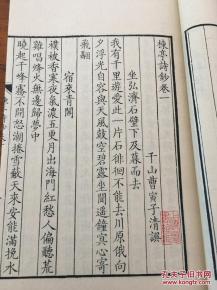 楝亭詩鈔卷一
千山曹寅子清譔
坐弘濟石壁下及暮而去
我有千里遊愛此一片石徘徊不能去川原俄向
夕浮光自容與天風鼓空碧露坐聞遥鐘冥心寄
飛翮
宿來青閣
襆被香寒夜氣濃五更月出海門紅愁人偏聽荒
雞唱烽火無邊歸夢中
曉起千峰霧不開怒潮捲雪蹴天來安能滿挽水